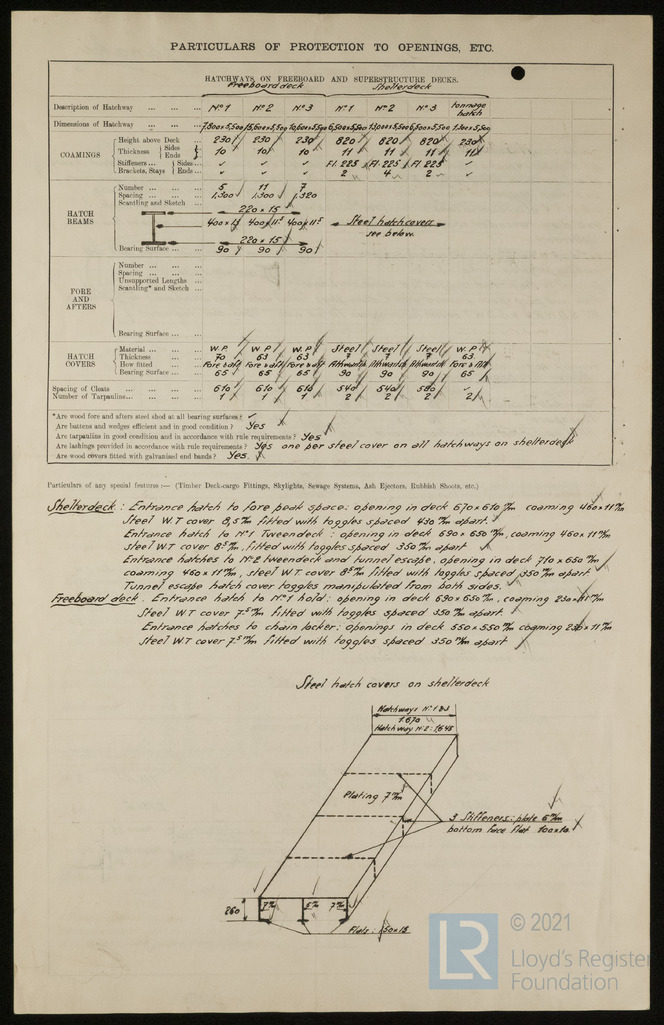 PARTICULARS OF PROTECTION TO OPENINGS, ETC.
HATCHWAYS ON FREEBOARD AND SUPERSTRUCTURE DECKS.
Freeboard deck Shelterdeck
Description of Hatchway ... ... ... Nº 1 Nº 2 Nº 3 Nº 1 Nº 2 Nº 3 tonnage hatch
Dimensions of Hatchway ... ... ...
COAMINGS
Height above Deck ... 230 230 230 820 820 820 230
Thickness Sides Ends ... 10 10 10 11 11 11 11
Stiffeners ... Sides ... ✓ ✓ ✓ Fl. 225 Fl. 225 Fl. 225 ✓
Brackets, Stays Ends ... ✓ ✓ ✓ 2 4 2 ✓
HATCH BEAMS
Number ... ... ... 5 11 7
Spacing ... ... ... 1,300 1,300 1,320
Scantling and Sketch ...
220 x 15
400 x 11⁵ 400 x 11⁵ Steel hatchcovers
see below.
220 x 15
Bearing Surface ... ... 90 90 90
FORE AND AFTERS
Number ... ... ...
Spacing ... ... ...
Unsupported Lengths ...
Scantling* and Sketch ...
Bearing Surface ... ...
HATCH COVERS
Material ... ... ... W.P W.P W.P Steel Steel Steel W.P
Thickness ... ... 70 63 63 7 7 7 63
How fitted ... ... Fore & aft Fore & aft Fore & aft Athwartsh Athwartsh Athwartsh Fore & Aft
Bearing Surface ... ... 65 65 65 90 90 90 65
Spacing of Cleats ... ... ... ... 610 610 610 540 540 580 ✓
Number of Tarpaulins ... ... ... 1 1 1 2 2 2 2
*Are wood fore and afters steel shod at all bearing surfaces? ✓
Are battens and wedges efficient and in good condition? Yes
Are tarpaulins in good condition and in accordance with rule requirements? Yes
Are lashings provided in accordance with rule requirements? Yes one per steel cover on all hatchways on shelterdeck
Are wood covers fitted with galvanised end bands? Yes.
Particulars of any special features :— (Timber Deck-cargo Fittings, Skylights, Sewage Systems, Ash Ejectors, Rubbish Shoots, etc.)
Shelterdeck : Entrance hatch to fore peak space: opening in deck 670 x 610 m/m coaming 460 x 11 m/m
Steel W.T cover 8,5 m/m fitted with toggles spaced 430 m/m apart.
Entrance hatch to Nº 1 Tweendeck : opening in deck 690 x 650 m/m, coaming 460 x 11 m/m
steel W.T cover 8.5 m/m, fitted with toggles spaced 350 m/m apart
Entrance hatches to Nº 2 tweendeck and tunnel escape, opening in deck 710 x 650 m/m
coaming 460 x 11 m/m, steel W.T. cover 8⁵ m/m fitted with toggles spaced 350 m/m apart.
Tunnel escape hatch cover toggles manipulated from both sides.
Freeboard deck. Entrance hatch to Nº 1 hold: opening in deck 690 x 650 m/m, coaming 230 x 11 m/m
Steel W.T cover 7.5 m/m fitted with toggles spaced 350 m/m apart.
Entrance hatches to chain locker: openings in deck 550 x 550 m/m coaming 230 x 11 m/m
Steel W.T cover 7.5 m/m fitted with toggles spaced 350 m/m apart
Steel hatch covers on shelterdeck
Hatchways Nº 1 & 3
1.670
Hatchway Nº 2: 1,645
Plating 7 m/m
3 Stiffeners: plate 6 m/m
bottom face flat 100 x 10
260
7 m/m 6 m/m 7 m/m
Flats: 150 x 15
LR
© 2021
Lloyd's Register
Foundation